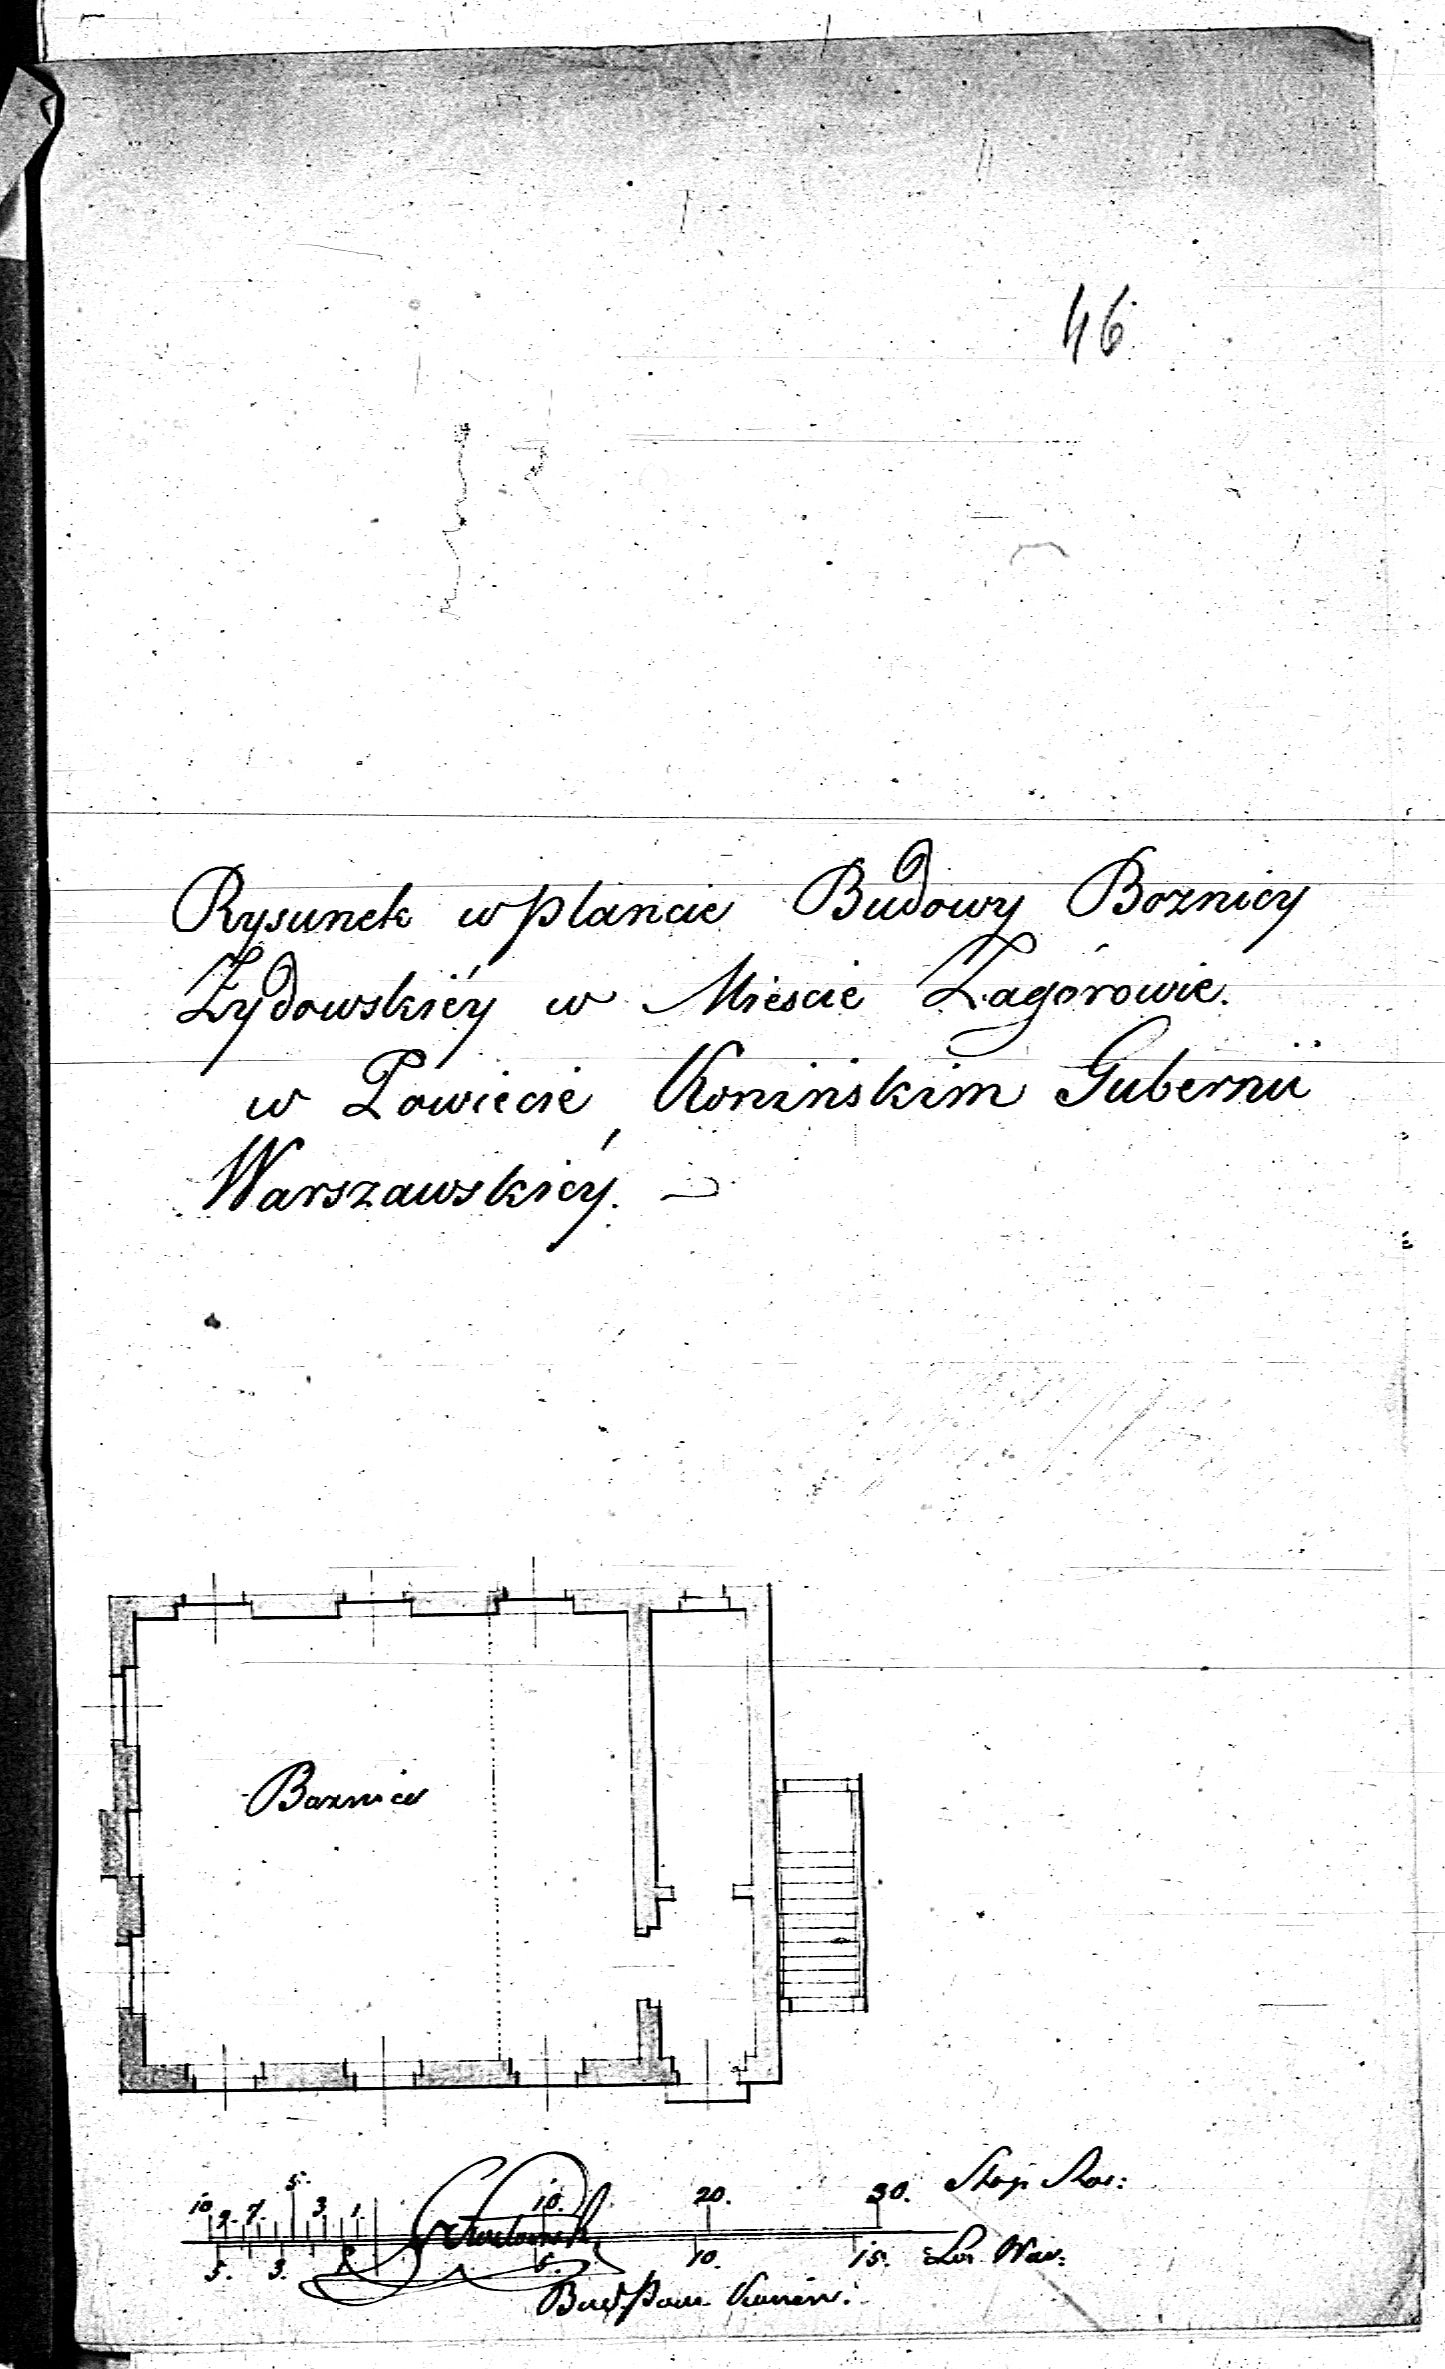 46
Rysunek w plancie Budowy Boznicy
Zydowskiéy w Mieście Zagórowie.
w Powiecie Konińskim Gubernii
Warszawskiéy.
Boznica
10 9. 7. 5. 3. 1. 10. 20. 30. Stop Ros:
5. 3. 1. 5. 10. 15. Łok War:
Bud. Pow. Konin: